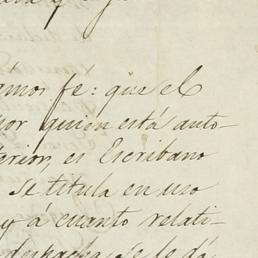 amos fé: que el
por quien está auto-
erior, es Escribano
se titula en uso
y á cuanto relati-
despacha, se le dá